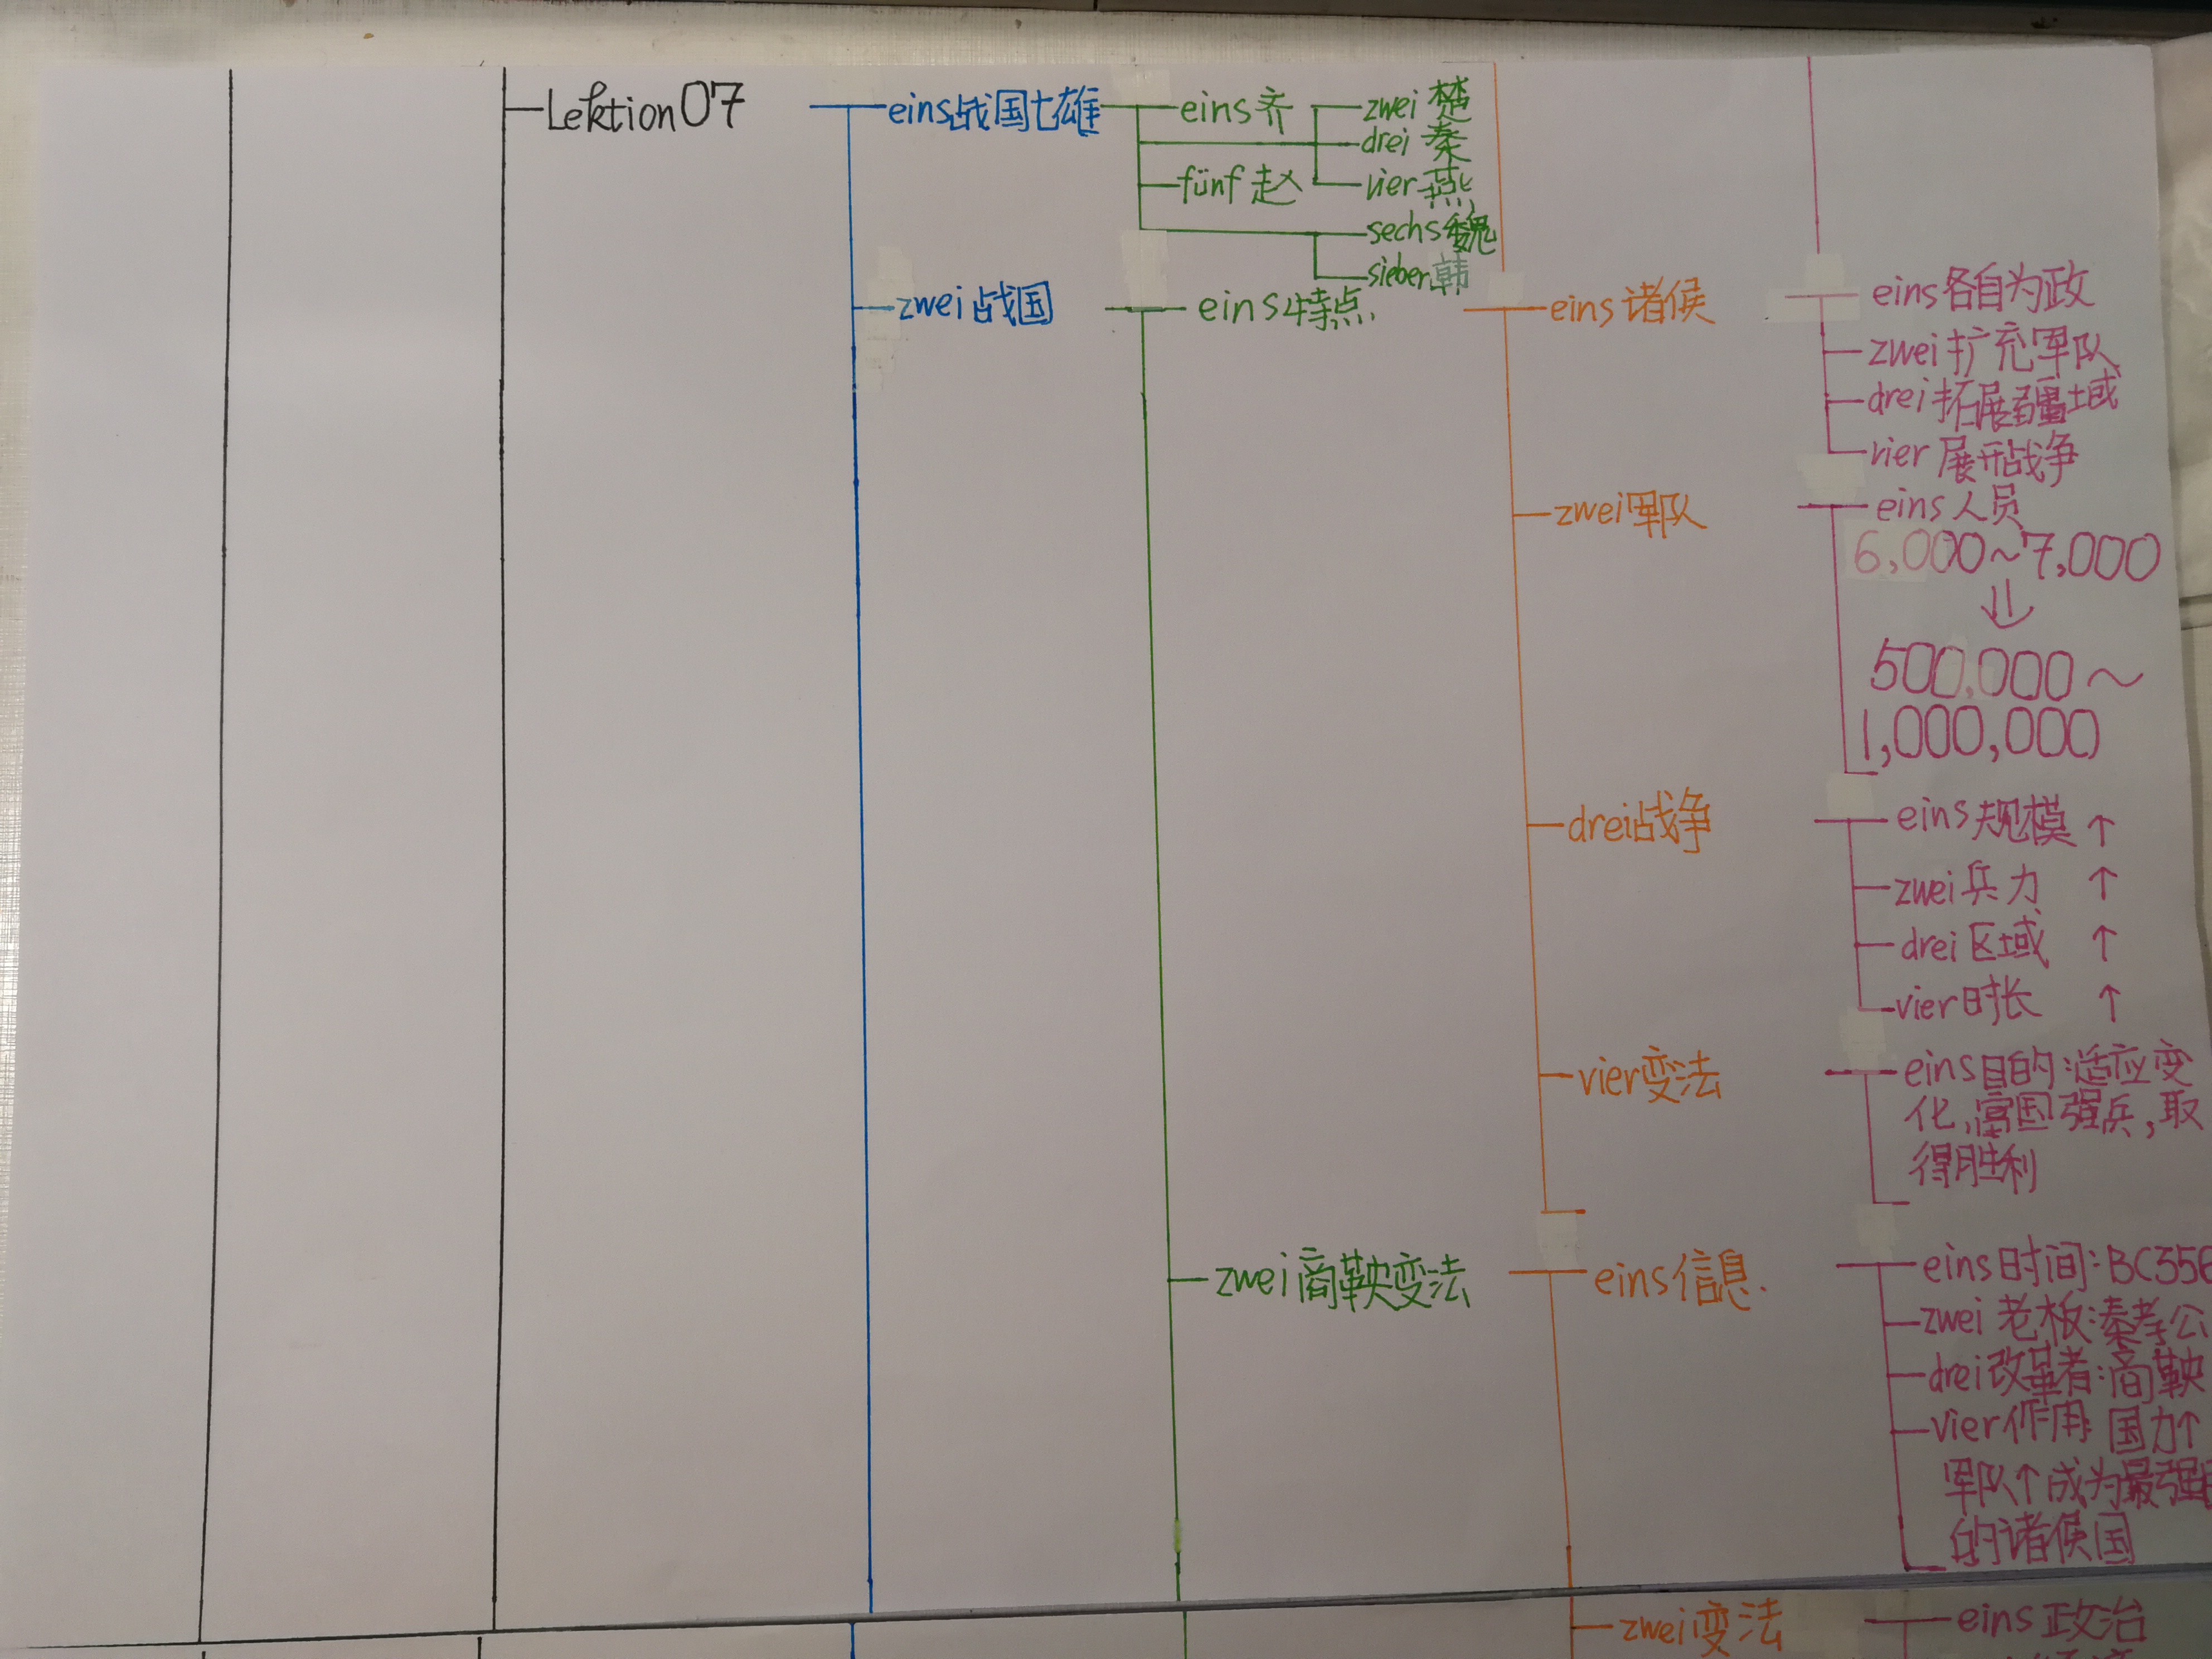 Lektion 07
eins 战国七雄
eins 齐
zwei 楚
drei 秦
vier 燕
fünf 赵
sechs 魏
sieben 韩
zwei 战国
eins 特点
eins 诸侯
eins 各自为政
zwei 扩充军队
drei 拓展疆域
vier 展开战争
zwei 军队
eins 人员
6,000~7,000
⇓
500,000~
1,000,000
drei 战争
eins 规模 ↑
zwei 兵力 ↑
drei 区域 ↑
vier 时长 ↑
vier 变法
eins 目的:适应变
化,富国强兵,取
得胜利
zwei 商鞅变法
eins 信息
eins 时间:BC356
zwei 老板:秦孝公
drei 改革者:商鞅
vier 作用 国力↑
军队↑成为最强
的诸侯国
zwei 变法
eins 政治